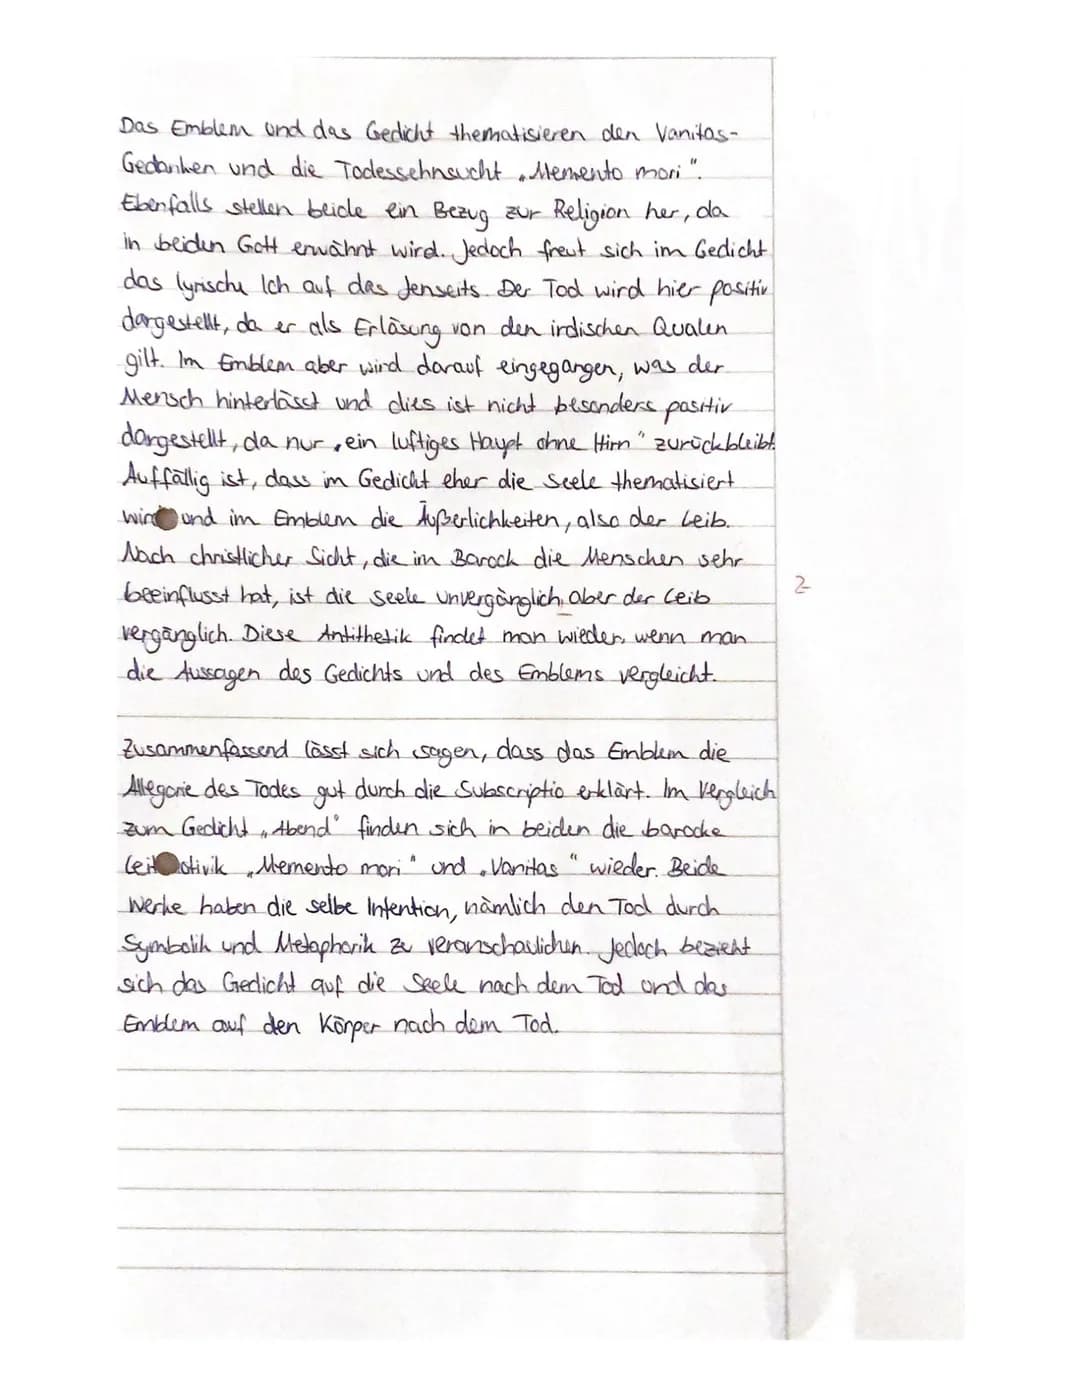 Das Emblem und das Gedicht thematisieren den Vanitas-
Gedanken und die Todessehnsucht „Memento mori“.
Ebenfalls stellen beide ein Bezug zur Religion her, da
in beiden Gott erwähnt wird. Jedoch freut sich im Gedicht
das lyrische Ich auf das Jenseits. Der Tod wird hier positiv
dargestellt, da er als Erlösung von den irdischen Qualen
gilt. Im Emblem aber wird darauf eingegangen, was der
Mensch hinterlässt und dies ist nicht besonders positiv
dargestellt, da nur „ein luftiges Haupt ohne Hirn“ zurückbleibt.
Auffällig ist, dass im Gedicht eher die Seele thematisiert
und im Emblem die Äußerlichkeiten, also der Leib.
Nach christlicher Sicht, die im Barock die Menschen sehr
beeinflusst hat, ist die Seele unvergänglich, aber der Leib
2
vergänglich. Diese Antithetik findet man wieder, wenn man
die Aussagen des Gedichts und des Emblems vergleicht.
Zusammenfassend lässt sich sagen, dass das Emblem die
Allegorie des Todes gut durch die Subscriptio erklärt. Im Vergleich
zum Gedicht „Abend“ finden sich in beiden die barocke
„Memento mori“ und „Vanitas“ wieder. Beide
Werke haben die selbe Intention, nämlich den Tod durch
Symbolik und Metaphorik zu veranschaulichen. Jedoch bezieht
sich das Gedicht auf die Seele nach dem Tod und das
Emblem auf den Körper nach dem Tod.